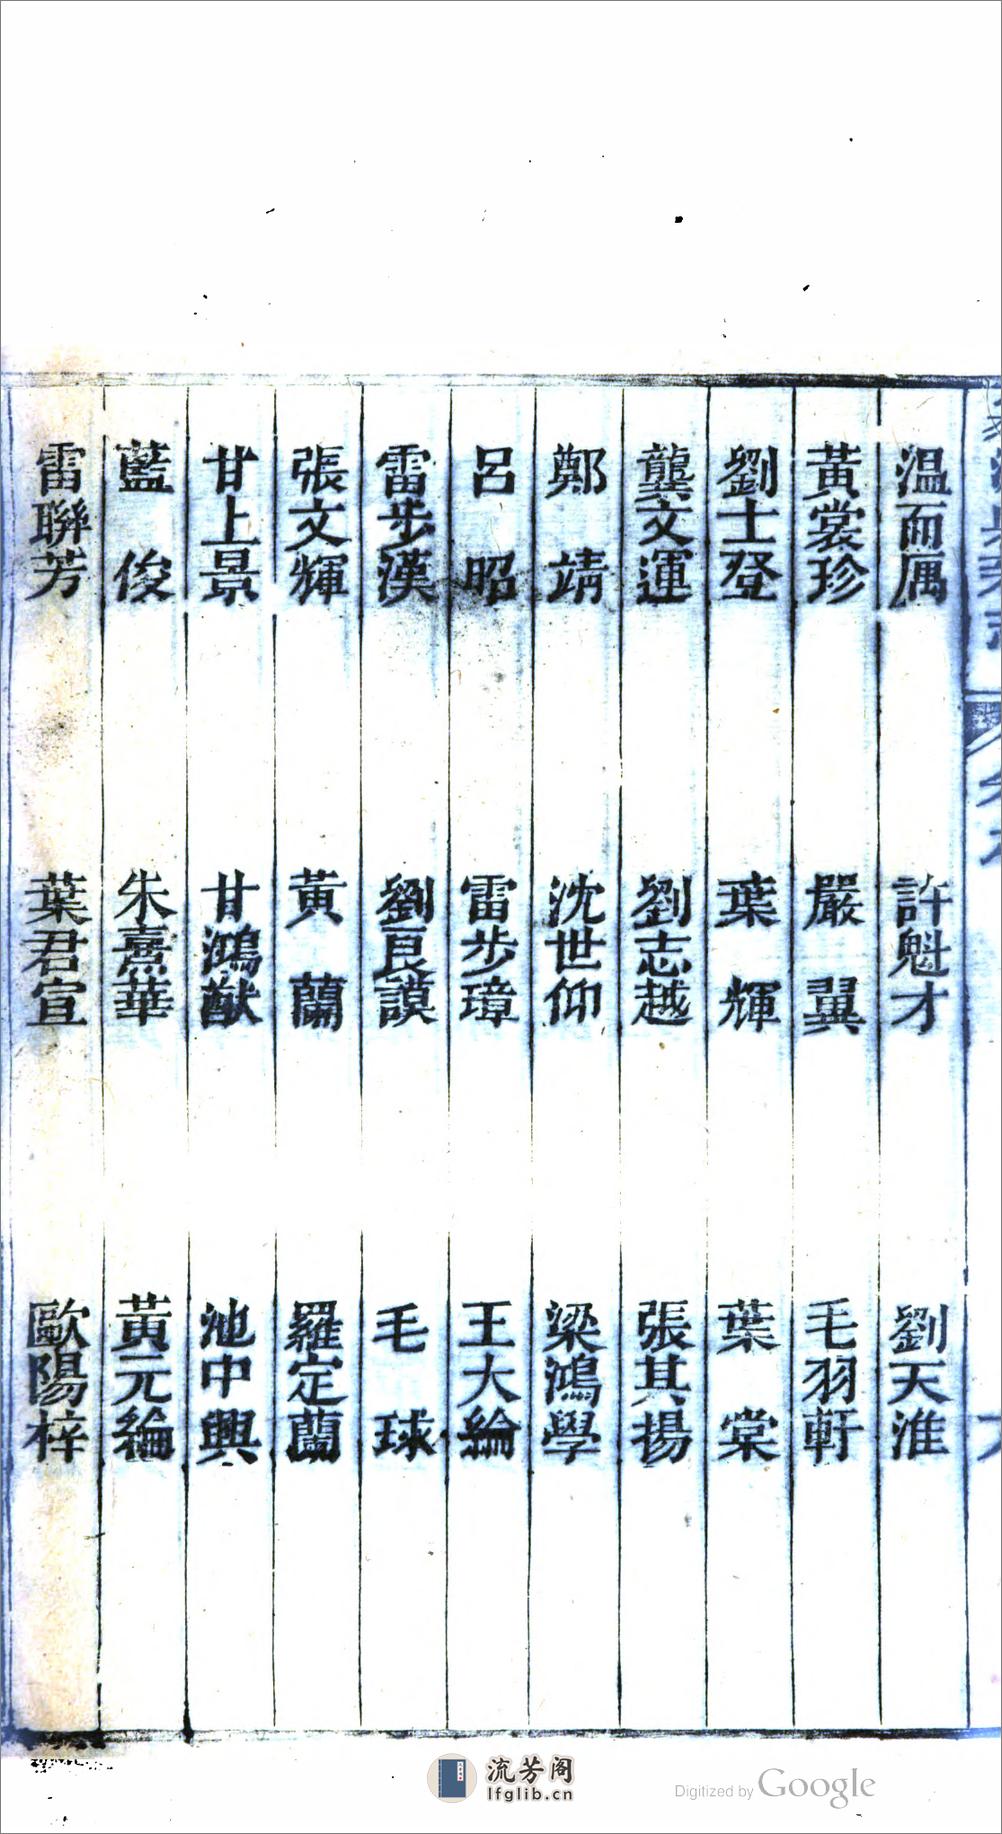 温而厲 許魁才 劉天淮
黃裳珍 嚴翼 毛羽軒
劉士登 葉輝 葉棠
龔文運 劉志越 張其揚
鄭靖 沈世仰 梁鴻學
呂昭 雷步璋 王大綸
雷步漢 劉良謨 毛球
張文輝 黃蘭 羅定蘭
甘上景 甘鴻猷 池中興
藍俊 朱熹華 黃元綸
雷聯芳 葉君宣 歐陽梓
流芳阁
lfglib.cn
Digitized by Google